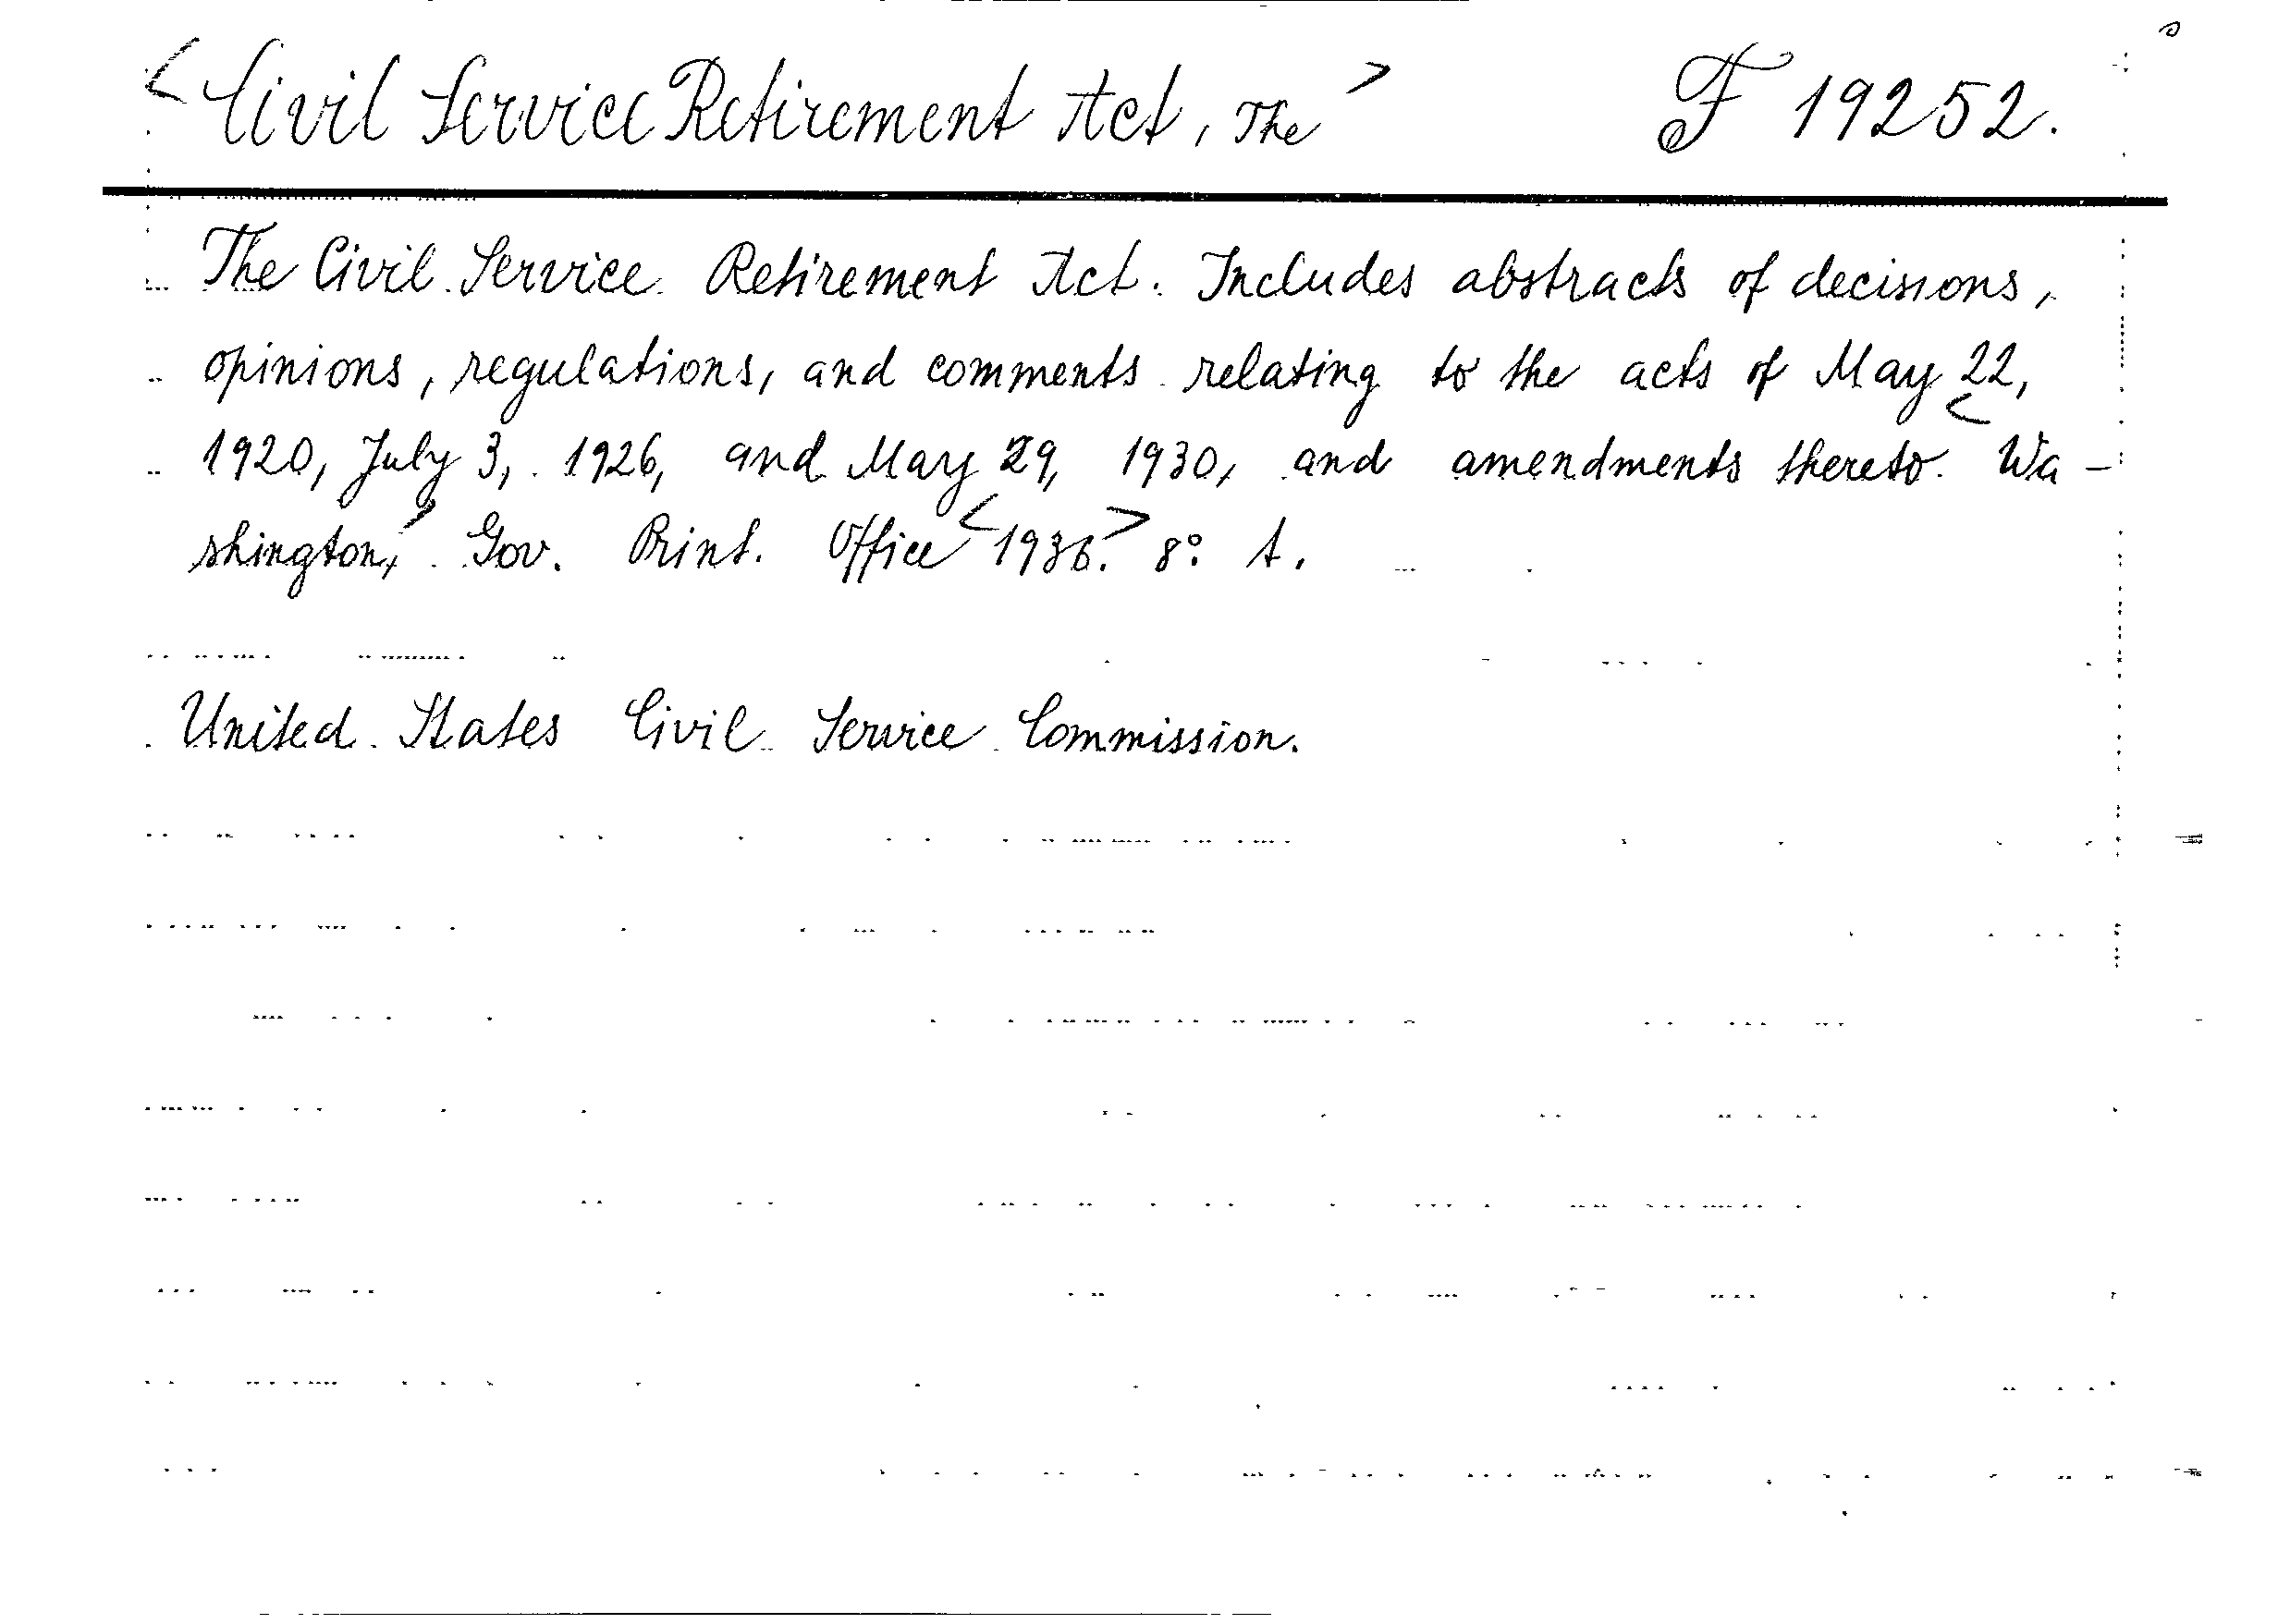 <Civil Service Retirement Act, The> F 19252.
The Civil Service Retirement Act. Includes abstracts of decisions,
opinions, regulations, and comments relating to the acts of May 22,
1920, July 3, 1926, and May 29, 1930, and amendments thereto. <Wa-
shington,> Gov. Print. Office <1936.> 8° t.
United States Civil Service Commission.